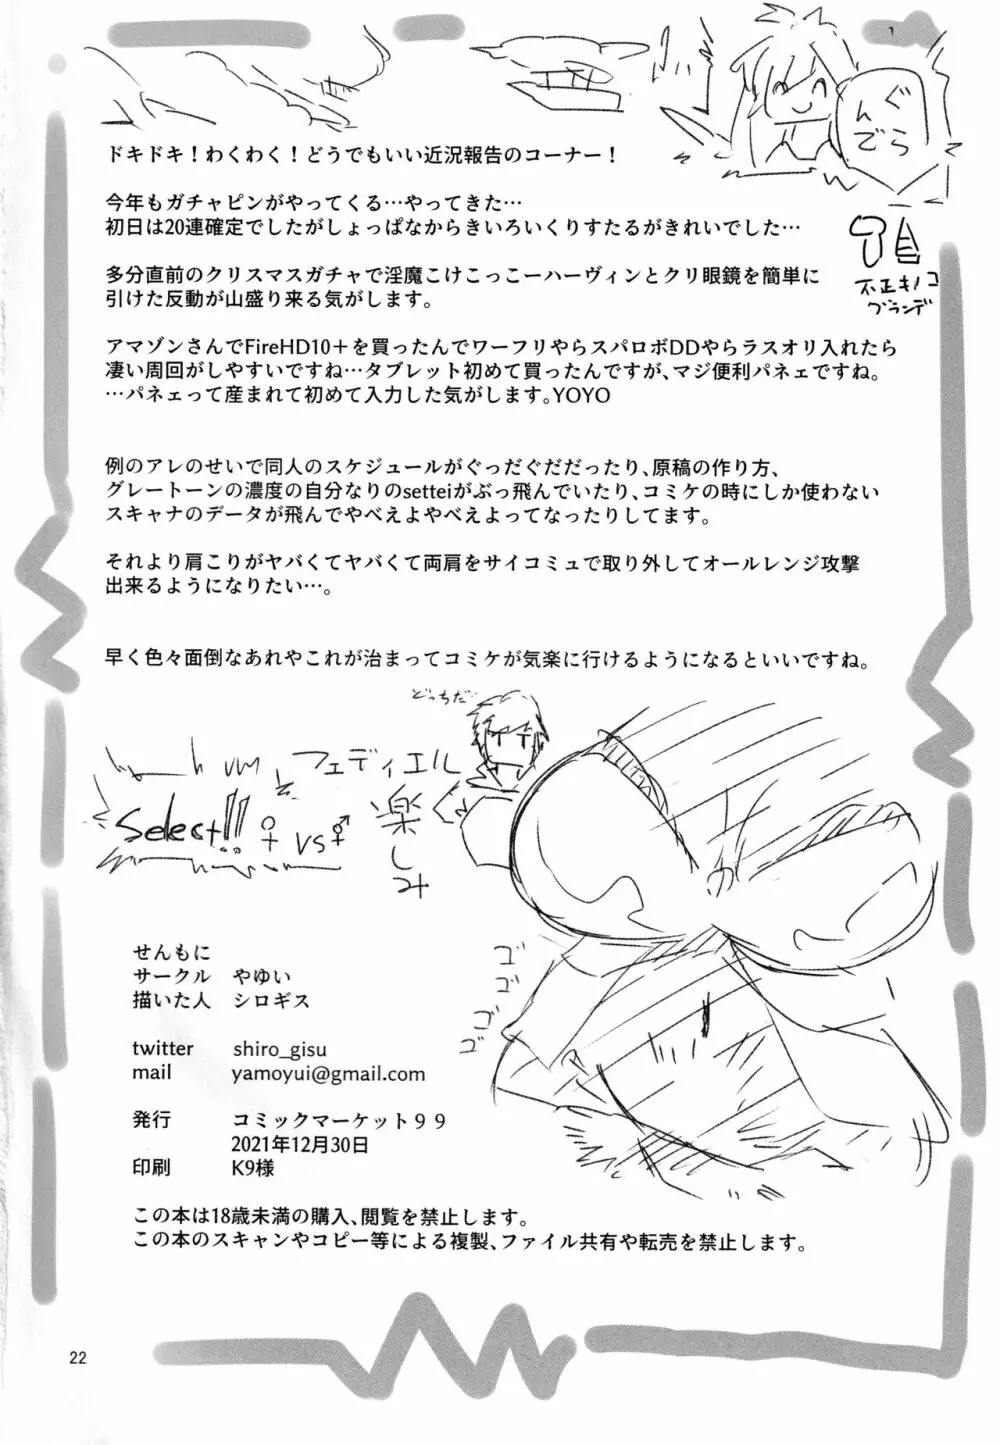 ぐらんで
ドキドキ！わくわく！どうでもいい近況報告のコーナー！
今年もガチャピンがやってくる…やってきた…
初日は20連確定でしたがしょっぱなからきいろいくりすたるがきれいでした…
不正キノコ
グランデ
多分直前のクリスマスガチャで淫魔こけこっこーハーヴィンとクリ眼鏡を簡単に
引けた反動が山盛り来る気がします。
アマゾンさんでFireHD10＋を買ったんでワーフリやらスパロボDDやらラスオリ入れたら
凄い周回がしやすいですね…タブレット初めて買ったんですが、マジ便利パネェですね。
…パネェって産まれて初めて入力した気がします。YOYO
例のアレのせいで同人のスケジュールがぐっだぐだだったり、原稿の作り方、
グレートーンの濃度の自分なりのsetteiがぶっ飛んでいたり、コミケの時にしか使わない
スキャナのデータが飛んでやべえよやべえよってなったりしてます。
それより肩こりがヤバくてヤバくて両肩をサイコミュで取り外してオールレンジ攻撃
出来るようになりたい…。
早く色々面倒なあれやこれが治まってコミケが気楽に行けるようになるといいですね。
どっちだ…
フェディエル
楽しみ
Select!!
♀vs⚥
せんもに
サークル　やゆい
描いた人　シロギス
ゴゴゴゴ
twitter　shiro_gisu
mail　yamoyui@gmail.com
発行　コミックマーケット９９
2021年12月30日
印刷　K9様
この本は18歳未満の購入、閲覧を禁止します。
この本のスキャンやコピー等による複製、ファイル共有や転売を禁止します。
22